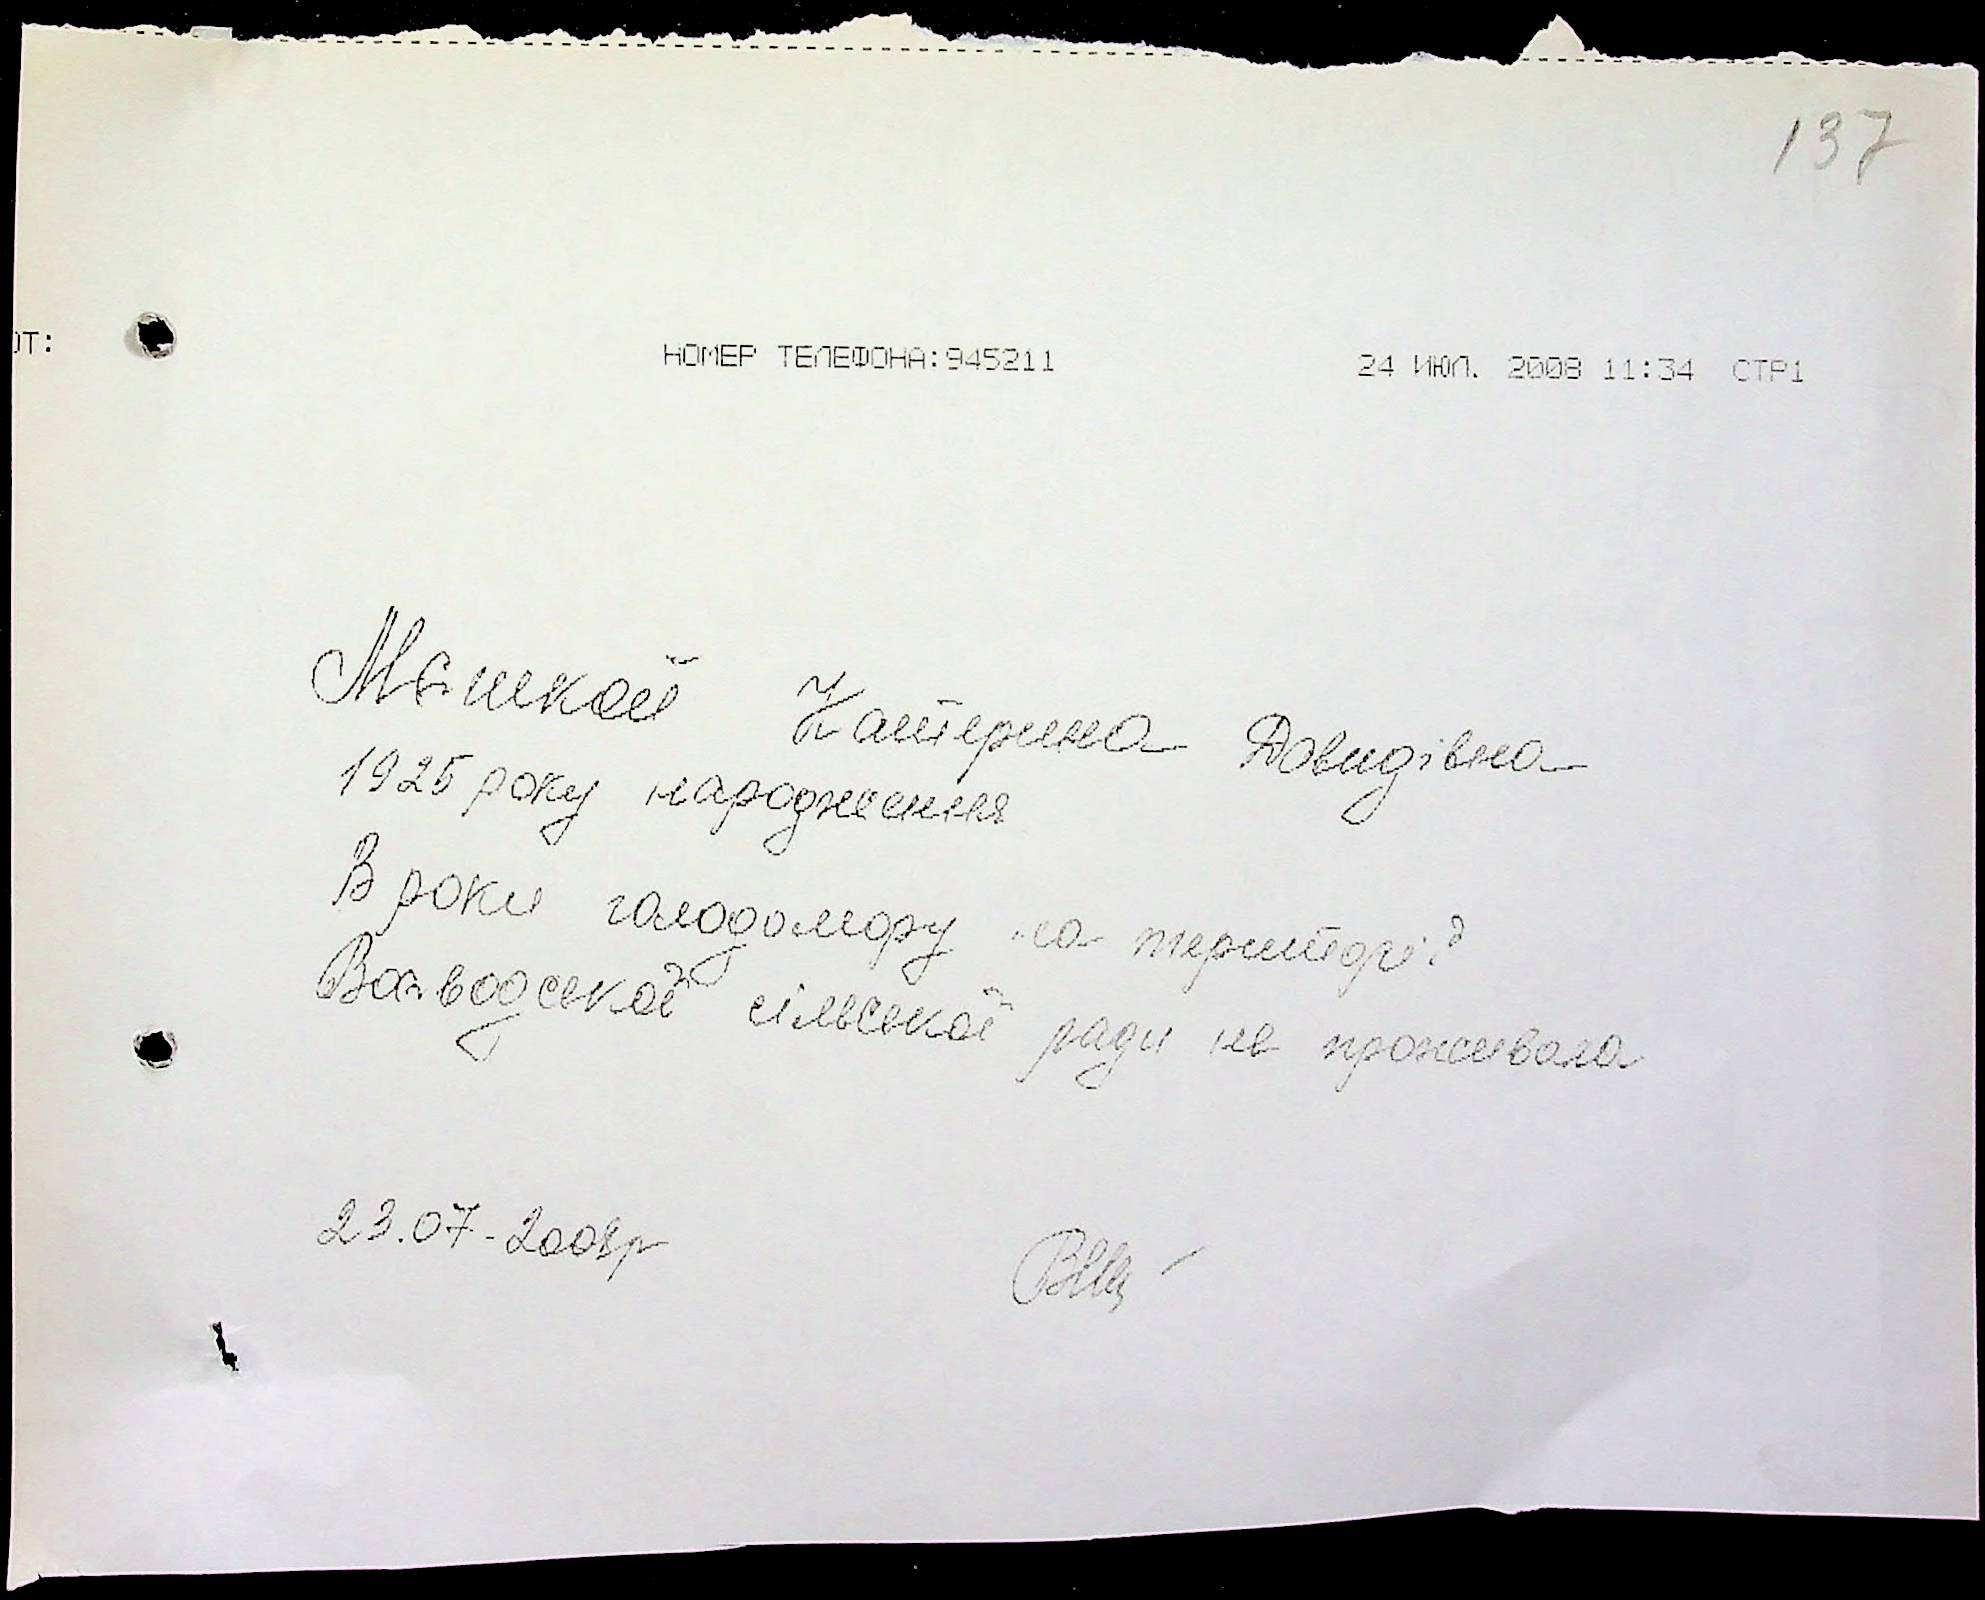 137
ОТ: НОМЕР ТЕЛЕФОНА:945211 24 ИЮЛ. 2008 11:34 СТР1
Катерина Довидівна
1925 року народження
В роки голодомору на території
сільської ради не проживала
23.07-2008р